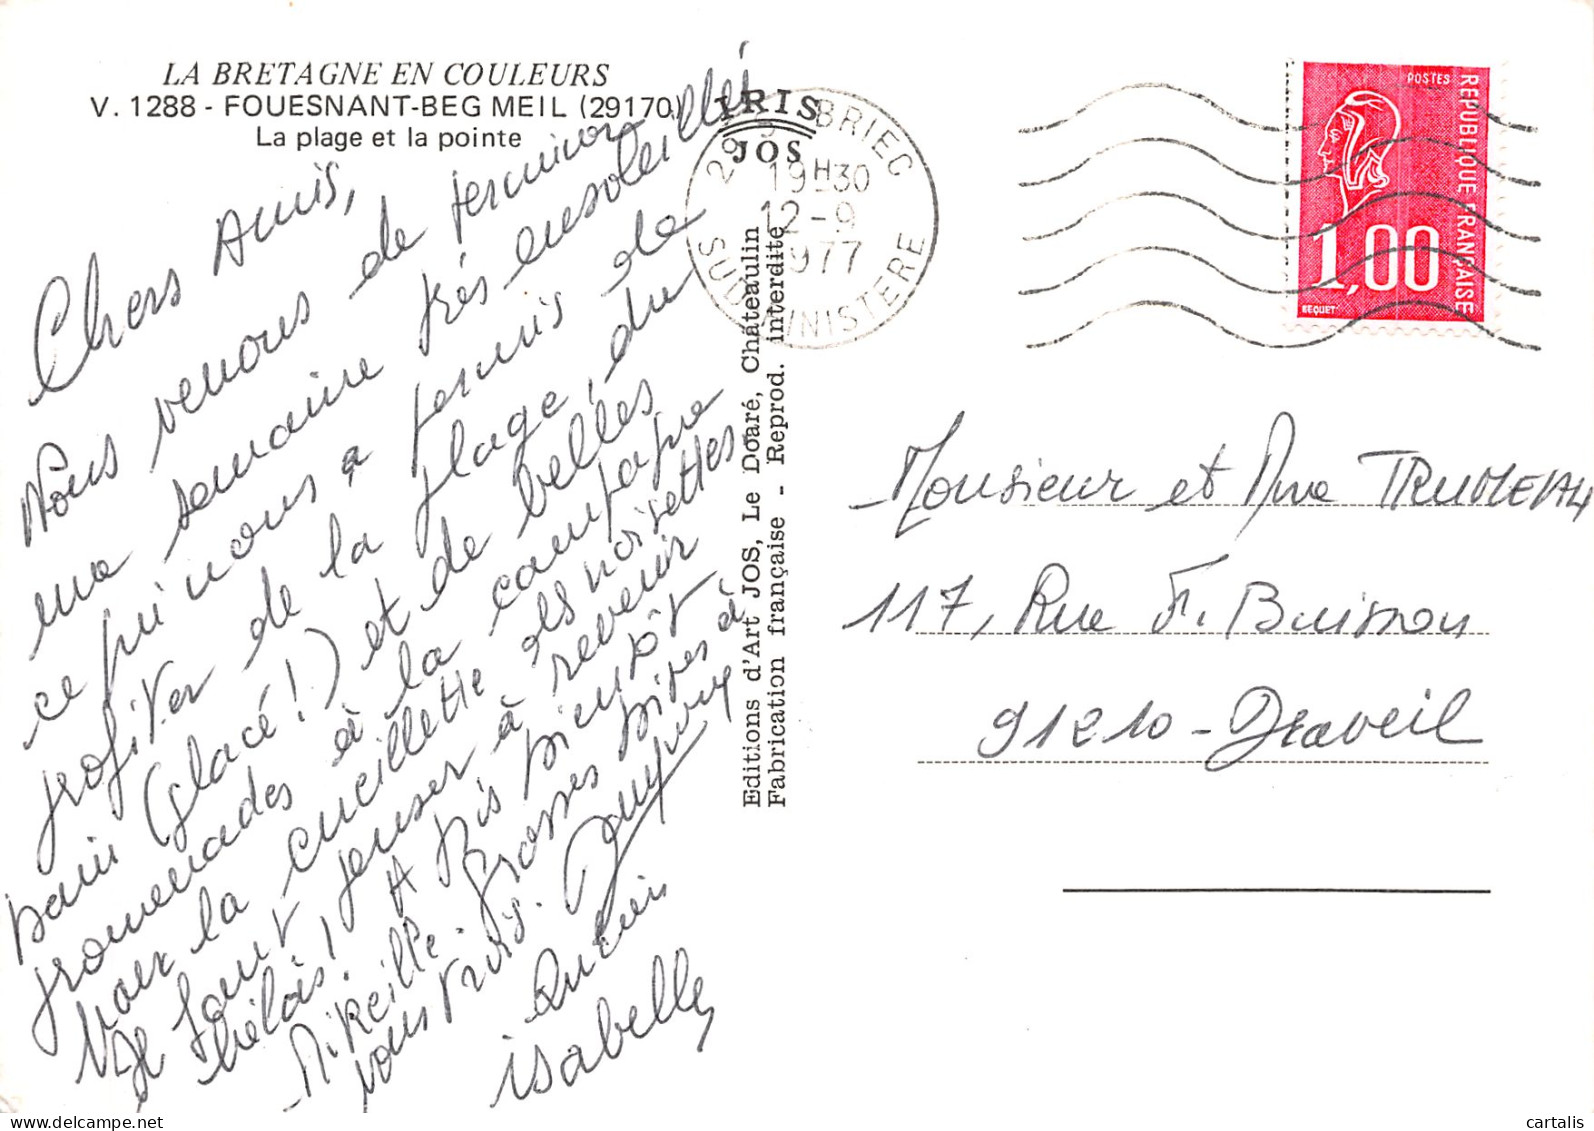 LA BRETAGNE EN COULEURS
V. 1288 - FOUESNANT-BEG MEIL (29170)
La plage et la pointe
Chers Amis,
Nous venons de terminer
une semaine très ensoleillée
ce qui nous a permis de
profiter de la plage, du
bain (glacé!) et de belles
promenades à la campagne
voir la cueillette des noisettes.
Il faut penser à revenir
hélas! A bientôt
Mireille. Grosses bises à
vous trois.
Quentin
isabelle
IRIS
JOS
29 BRIEC
19H30
12-9
1977
SUD FINISTERE
Editions d'Art JOS, Le Doaré, Châteaulin
Fabrication française - Reprod. interdite
POSTES
REPUBLIQUE FRANÇAISE
1,00
BEQUET
Monsieur et Mme TRUMEAU
117, Rue F. Buisson
91210 - Draveil
cartalis